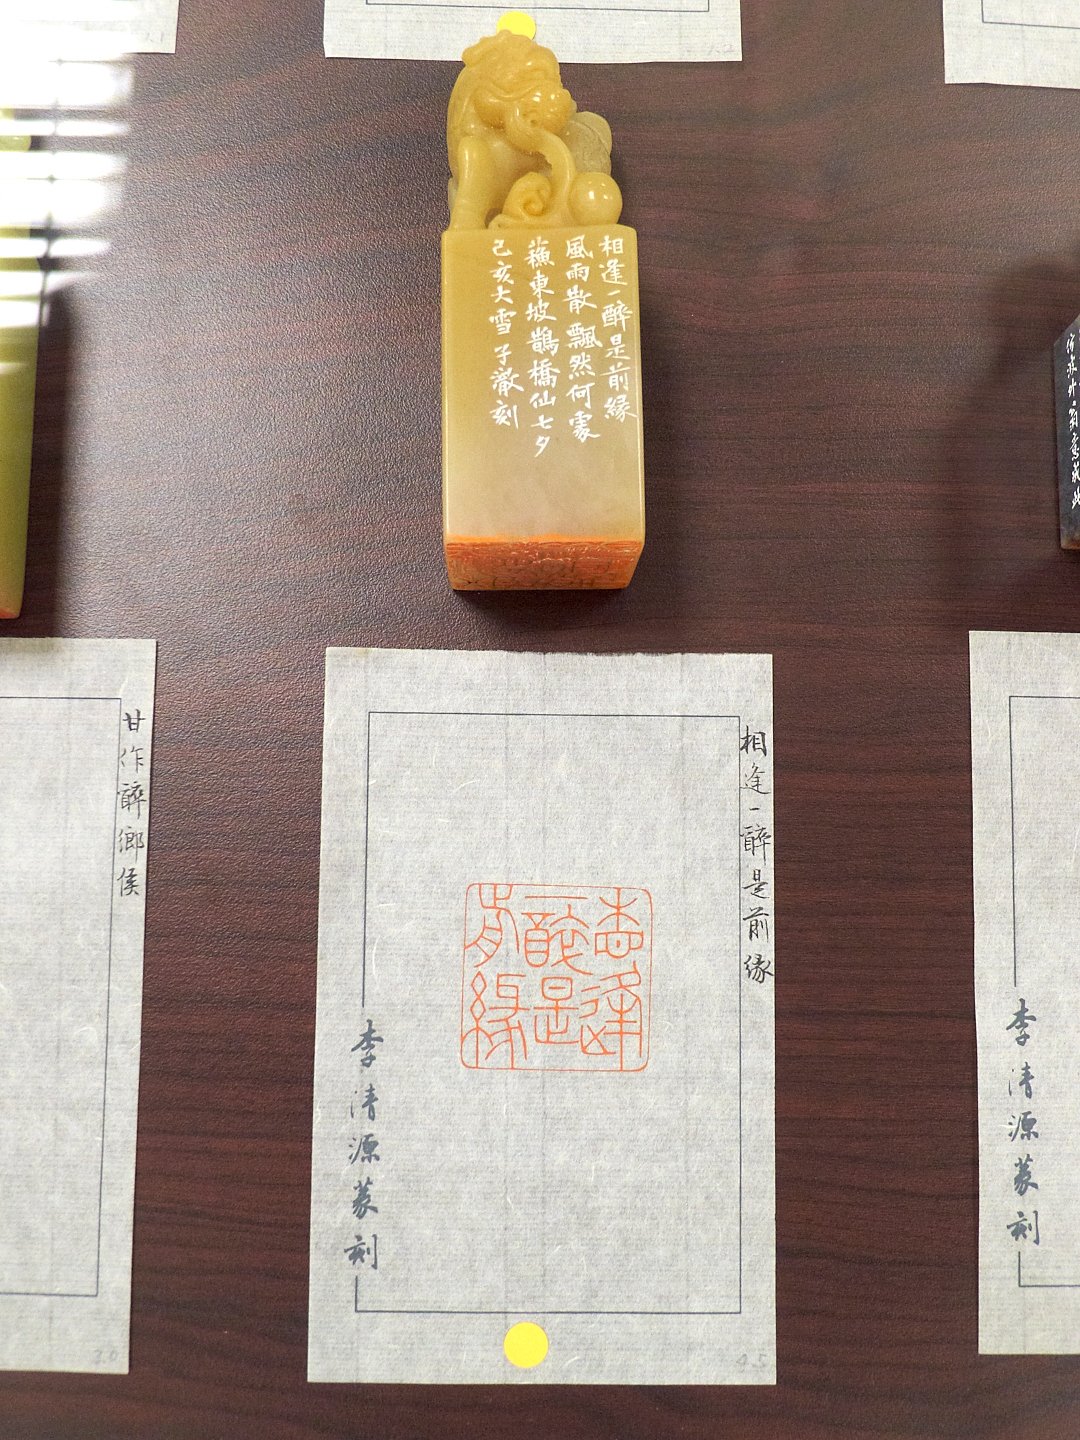 相逢一醉是前緣
風雨散飄然何處
蘇東坡鵲橋仙七夕
己亥大雪子澂刻
相逢一醉是前緣
相逢一醉是前緣
李清源篆刻
45
甘作醉鄉侯
30
李清源篆刻